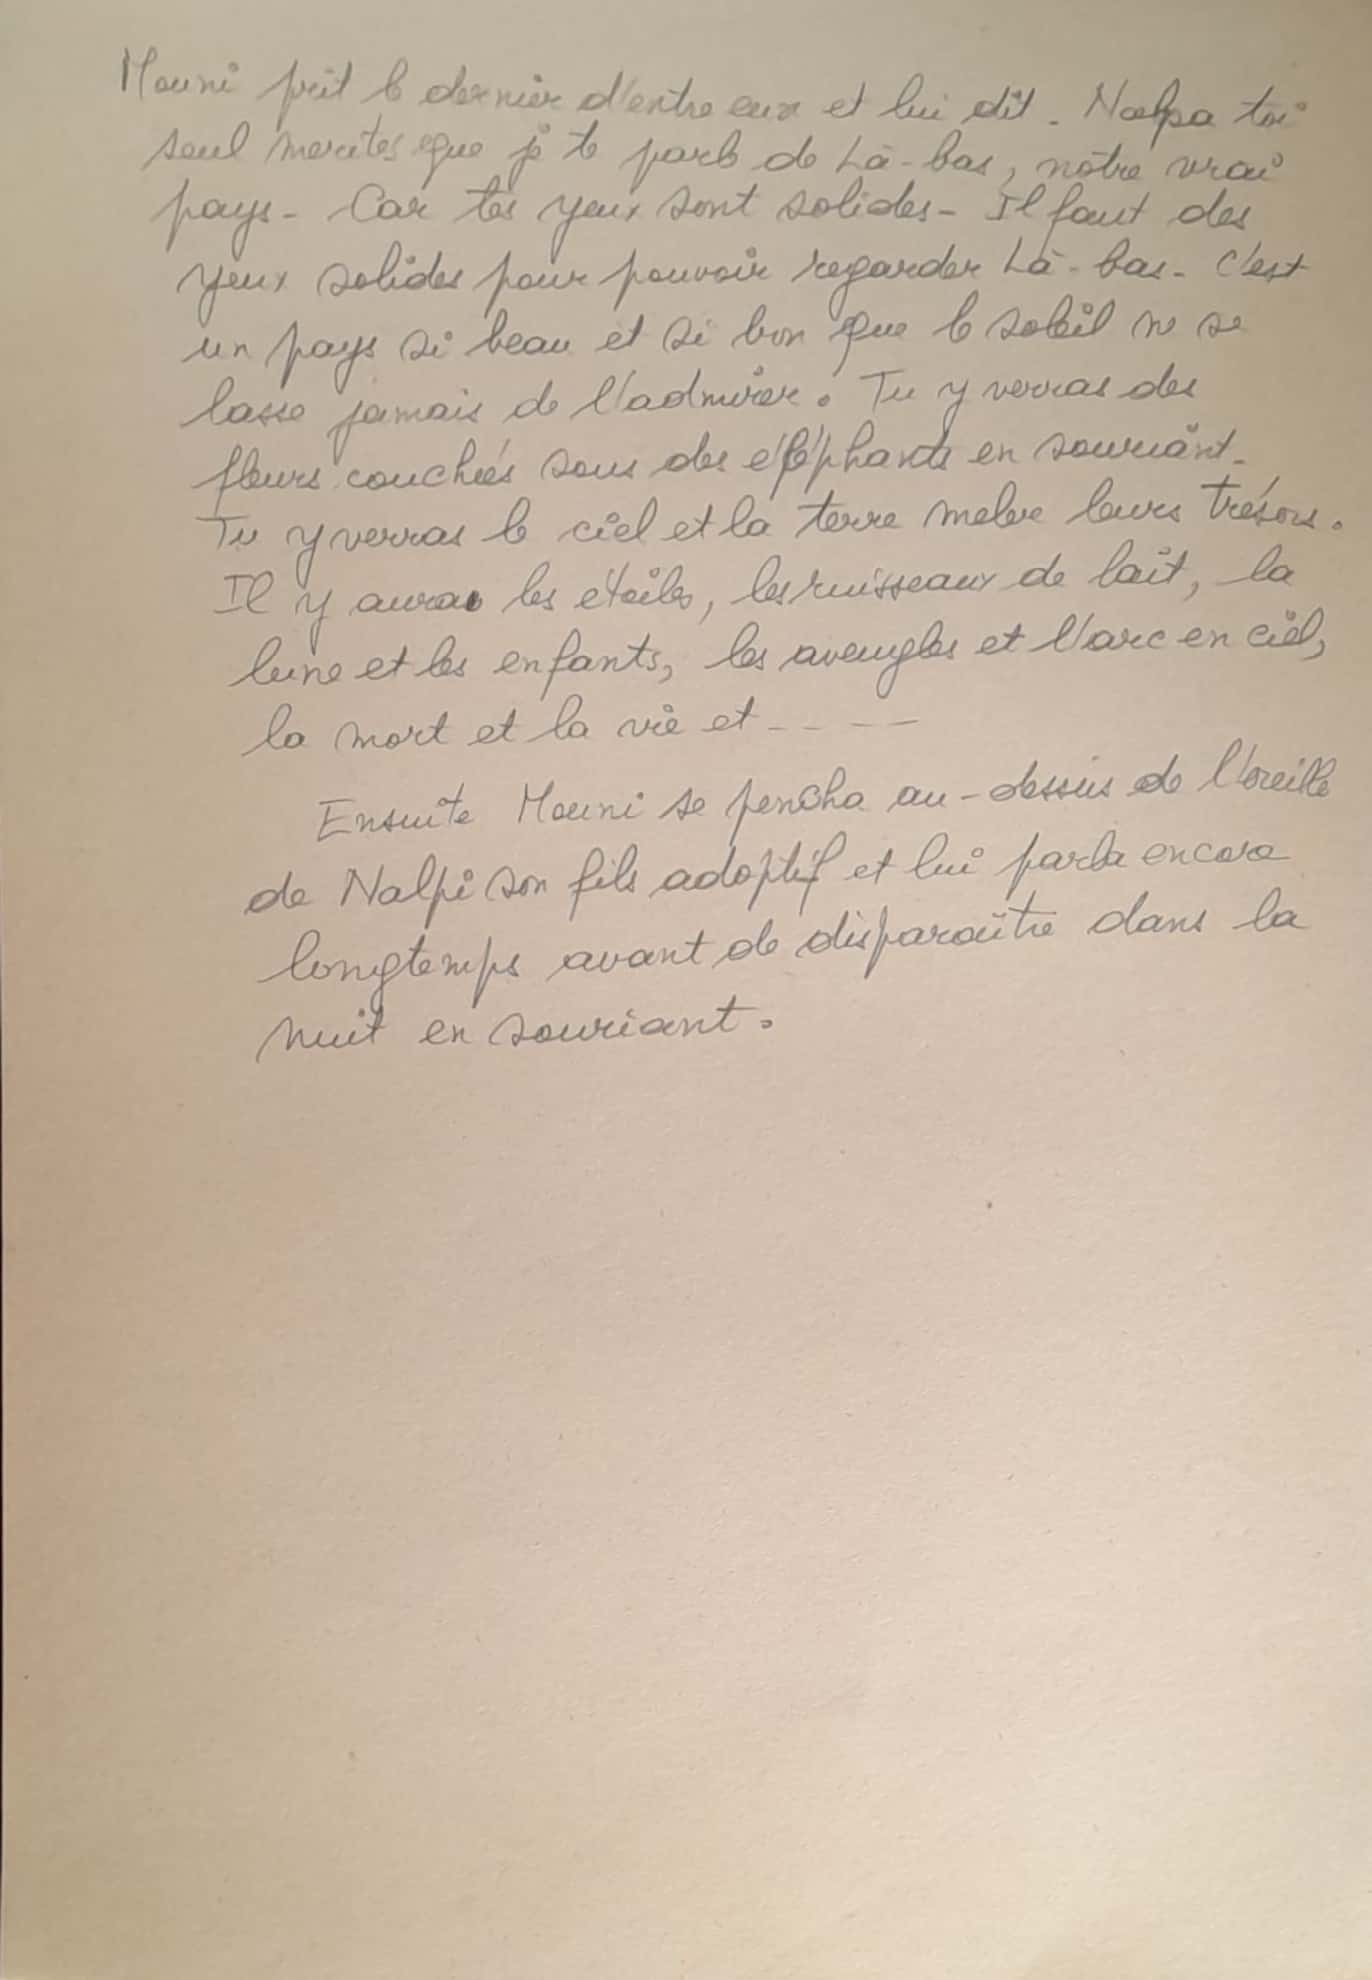 Mouni prit le dernier d'entre eux et lui dit. Nalpa toi
seul merites que je te parle de Là-bas, notre vrai
pays - Car tes yeux sont solides - Il faut des
yeux solides pour pouvoir regarder Là-bas - C'est
un pays si beau et si bon que le soleil ne se
lasse jamais de l'admirer. Tu y verras des
fleurs couchées sous des éléphants en souriant -
Tu y verras le ciel et la terre
leurs trésors.
Il y aura les étoiles, les ruisseaux de lait, la
lune et les enfants, les aveugles et l'arc en ciel,
la mort et la vie et - - - -
Ensuite Mouni se pencha au-dessus de l'oreille
de Nalpi son fils adoptif et lui parla encore
longtemps avant de disparaître dans la
nuit en souriant.